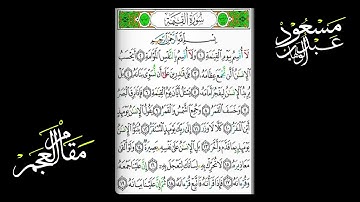 سُورَةُ القِيَامَةِ
بِسْمِ اللَّهِ الرَّحْمَٰنِ الرَّحِيمِ
لَا أُقْسِمُ بِيَوْمِ الْقِيَٰمَةِ ١ وَلَا أُقْسِمُ بِالنَّفْسِ اللَّوَّامَةِ ٢ أَيَحْسَبُ
الْإِنسَٰنُ أَلَّن نَّجْمَعَ عِظَامَهُ ٣ بَلَىٰ قَٰدِرِينَ عَلَىٰ أَن نُّسَوِّيَ بَنَانَهُ ٤
بَلْ يُرِيدُ الْإِنسَٰنُ لِيَفْجُرَ أَمَامَهُ ٥ يَسْـَٔلُ أَيَّانَ يَوْمُ الْقِيَٰمَةِ ٦ فَإِذَا بَرِقَ
الْبَصَرُ ٧ وَخَسَفَ الْقَمَرُ ٨ وَجُمِعَ الشَّمْسُ وَالْقَمَرُ ٩ يَقُولُ الْإِنسَٰنُ يَوْمَئِذٍ
أَيْنَ الْمَفَرُّ ١٠ كَلَّا لَا وَزَرَ ١١ إِلَىٰ رَبِّكَ يَوْمَئِذٍ الْمُسْتَقَرُّ ١٢ يُنَبَّؤُا الْإِنسَٰنُ
يَوْمَئِذٍ بِمَا قَدَّمَ وَأَخَّرَ ١٣ بَلِ الْإِنسَٰنُ عَلَىٰ نَفْسِهِ بَصِيرَةٌ ١٤ وَلَوْ أَلْقَىٰ
مَعَاذِيرَهُ ١٥ لَا تُحَرِّكْ بِهِ لِسَانَكَ لِتَعْجَلَ بِهِ ١٦ إِنَّ عَلَيْنَا جَمْعَهُ
وَقُرْءَانَهُ ١٧ فَإِذَا قَرَأْنَٰهُ فَاتَّبِعْ قُرْءَانَهُ ١٨ ثُمَّ إِنَّ عَلَيْنَا بَيَانَهُ ١٩
مسعود
مقام العجم